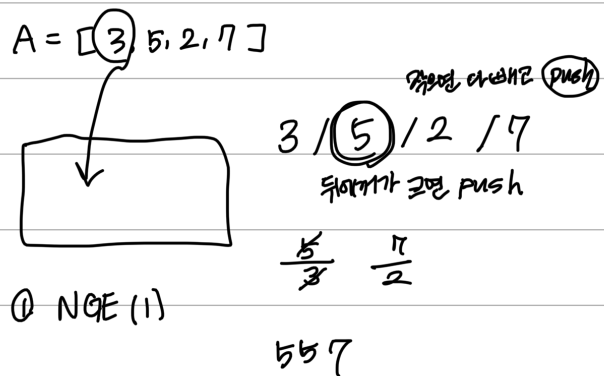 A = [3, 5, 2, 7]
작으면 다빼고 push
3 / 5 / 2 / 7
뒤에꺼가 크면 push
5 7
3 2
① NGE (1)
5 5 7